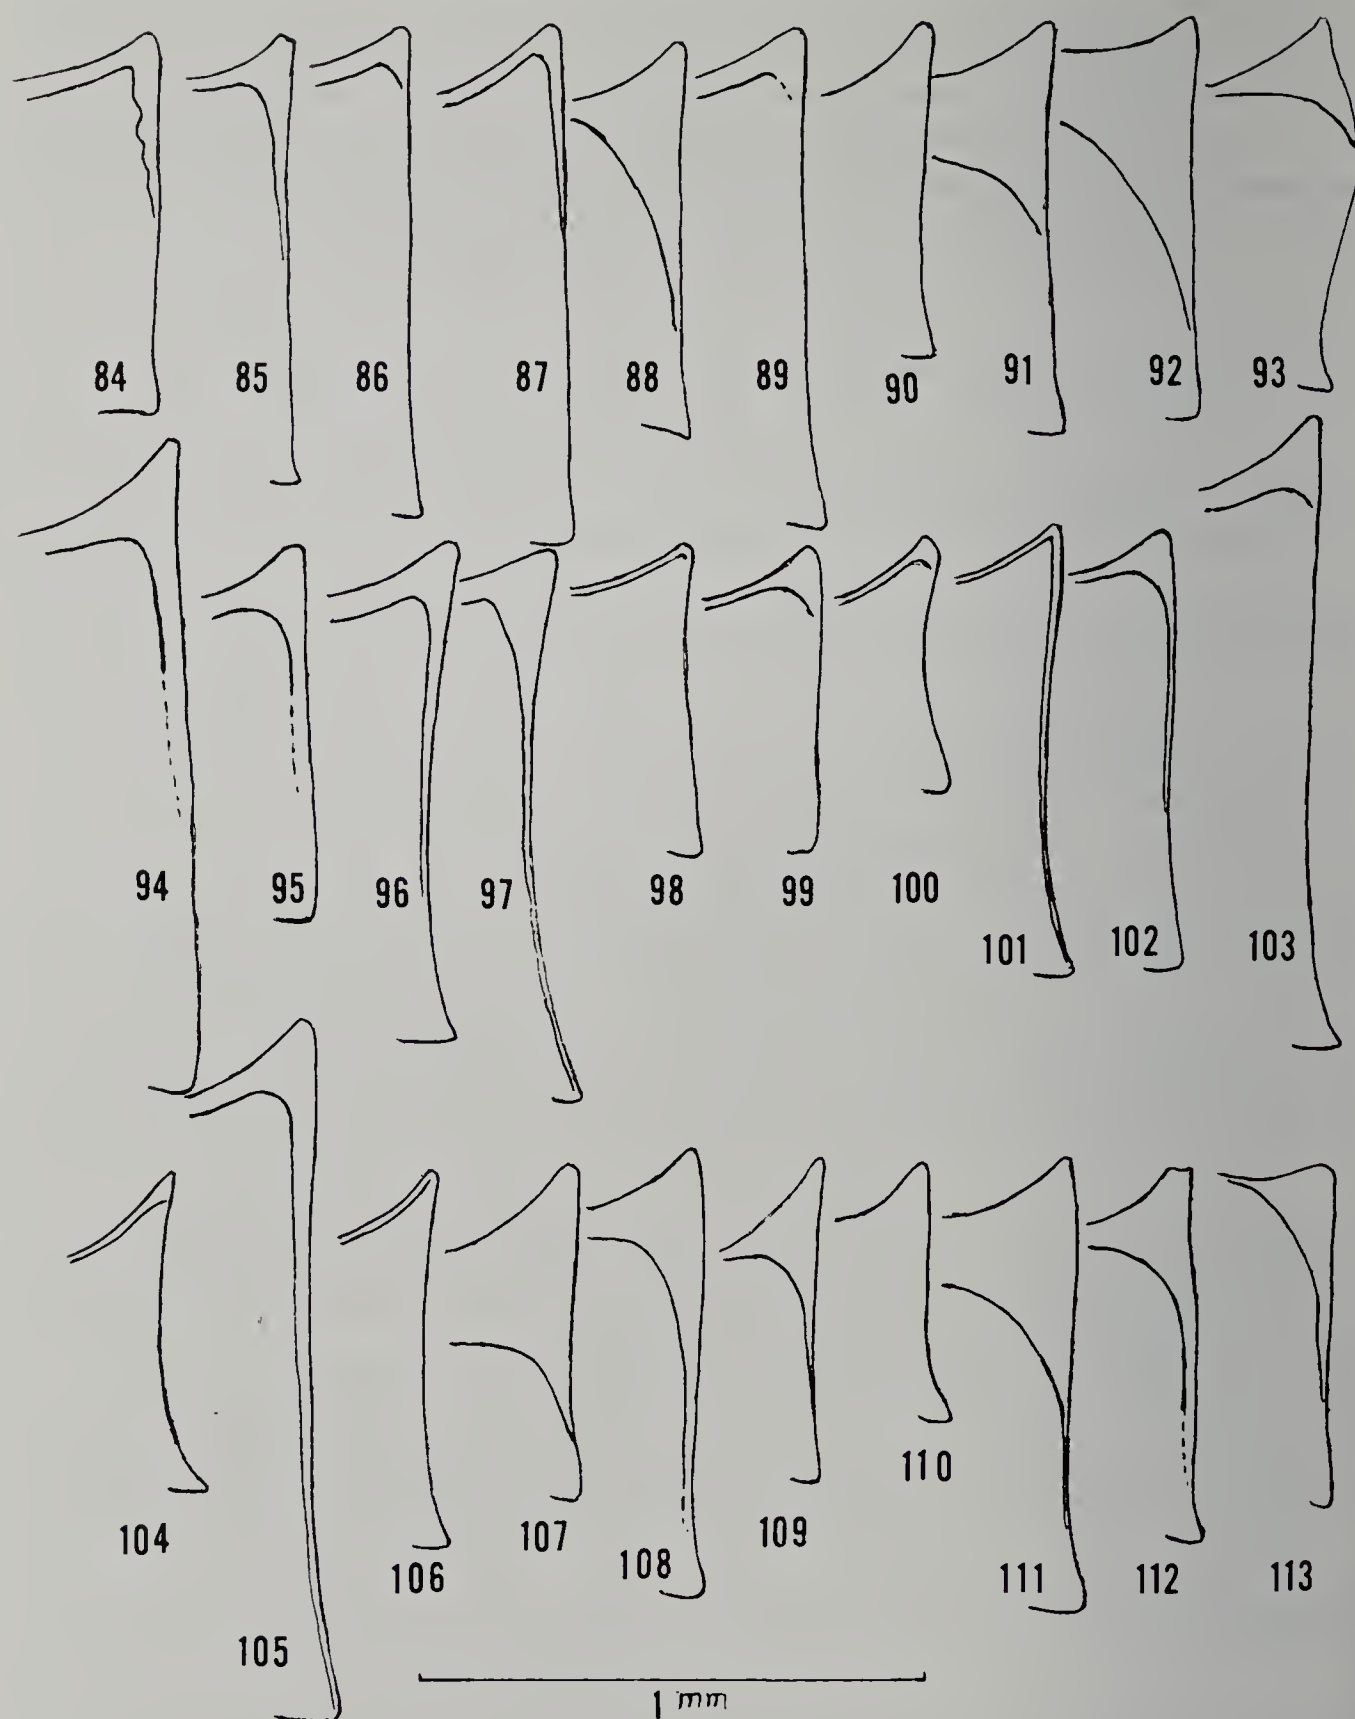 84 85 86 87 88 89 90 91 92 93
94 95 96 97 98 99 100 101 102 103
104 105 106 107 108 109 110 111 112 113
1 mm